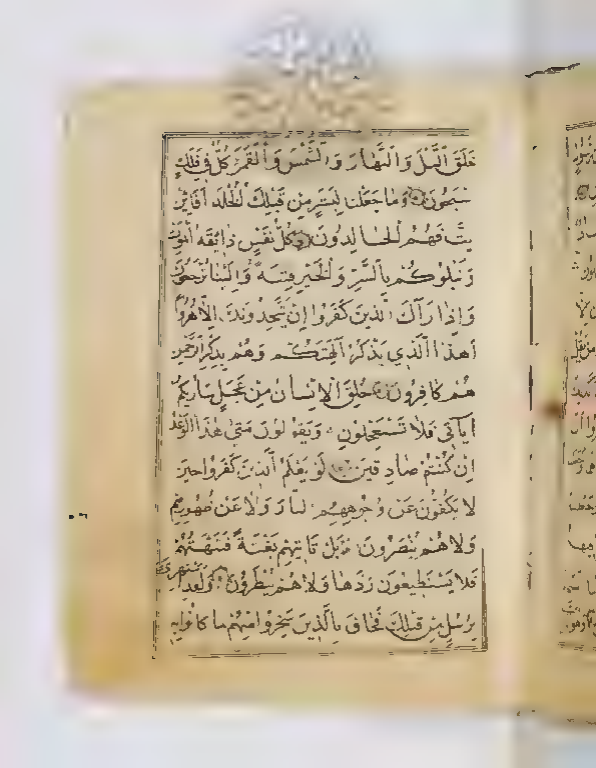 خَلَقَ الَّيْلَ وَالنَّهَارَ وَالشَّمْسَ وَالْقَمَرَ كُلٌّ فِي فَلَكٍ
يَسْبَحُونَ وَمَا جَعَلْنَا لِبَشَرٍ مِنْ قَبْلِكَ الْخُلْدَ أَفَائِنْ
مِتَّ فَهُمُ الْخَالِدُونَ كُلُّ نَفْسٍ ذَائِقَةُ الْمَوْتِ
وَنَبْلُوكُمْ بِالشَّرِّ وَالْخَيْرِ فِتْنَةً وَإِلَيْنَا تُرْجَعُونَ
وَإِذَا رَآكَ الَّذِينَ كَفَرُوا إِنْ يَتَّخِذُونَكَ إِلَّا هُزُوًا
أَهَذَا الَّذِي يَذْكُرُ آلِهَتَكُمْ وَهُمْ بِذِكْرِ الرَّحْمَنِ
هُمْ كَافِرُونَ خُلِقَ الْإِنْسَانُ مِنْ عَجَلٍ سَأُرِيكُمْ
آيَاتِي فَلَا تَسْتَعْجِلُونِ وَيَقُولُونَ مَتَى هَذَا الْوَعْدُ
إِنْ كُنْتُمْ صَادِقِينَ لَوْ يَعْلَمُ الَّذِينَ كَفَرُوا حِينَ
لَا يَكُفُّونَ عَنْ وُجُوهِهِمُ النَّارَ وَلَا عَنْ ظُهُورِهِمْ
وَلَا هُمْ يُنْصَرُونَ بَلْ تَأْتِيهِمْ بَغْتَةً فَتَبْهَتُهُمْ
فَلَا يَسْتَطِيعُونَ رَدَّهَا وَلَا هُمْ يُنْظَرُونَ وَلَقَدِ اسْتُهْزِئَ
بِرُسُلٍ مِنْ قَبْلِكَ فَحَاقَ بِالَّذِينَ سَخِرُوا مِنْهُمْ مَا كَانُوا بِهِ